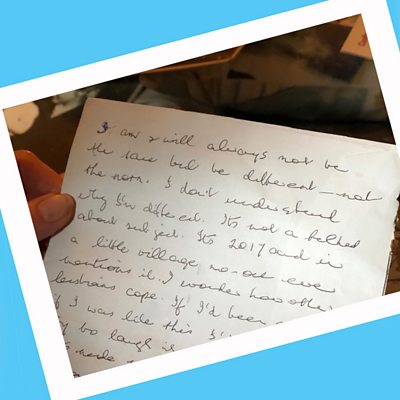 I am & will always not be
the same but be different — not
the norm. I don't understand
why I'm different. It's not a talked
about subject. It's 2017 and in
a little village, no-one ever
mentions it. I wonder how other
lesbians cope. If I'd been
I was like this
laugh
made